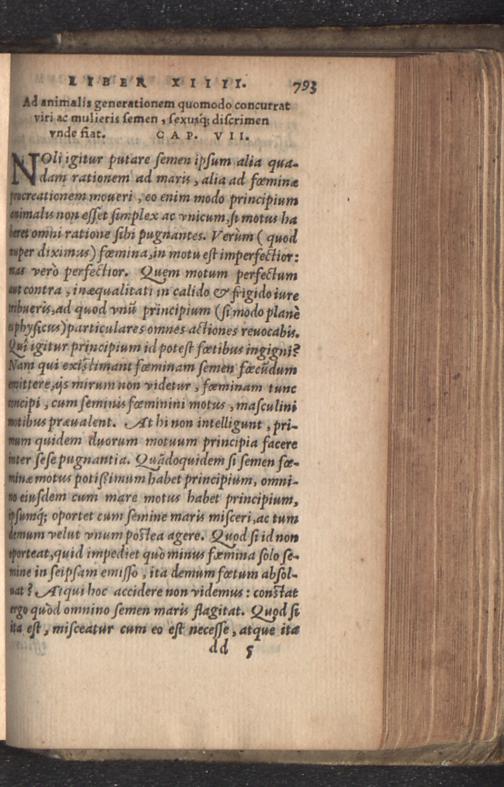 LIBER XIIII. 793
Ad animalis generationem quomodo concurrat
viri ac mulieris semen, sexusq; discrimen
vnde fiat. CAP. VII.
NOli igitur putare semen ipsum alia qua-
dam rationem ad maris, alia ad fœminæ
procreationem moueri, eo enim modo principium
animalis non esset simplex ac vnicum, si motus ha
beret omni ratione sibi pugnantes. Verùm (quod
nuper diximus) fœmina, in motu est imperfectior:
mas verò perfectior. Quem motum perfectum
aut contra, inæqualitati in calido & frigido iure
tribueris, ad quod vnũ principium (si modo planè
es physicus) particulares omnes actiones reuocabis.
Quî igitur principium id potest fœtibus ingigni?
Nam qui existimant fœminam semen fœcũdum
emittere, ijs mirum non videtur, fœminam tunc
concipi, cum seminis fœminini motus, masculini
motibus præualent. At hi non intelligunt, pri-
mum quidem duorum motuum principia facere
inter sese pugnantia. Quãdoquidem si semen fœ-
minæ motus potissimum habet principium, omni-
no eiusdem cum mare motus habet principium,
ipsumq; oportet cum semine maris misceri, ac tum
demum velut vnum postea agere. Quod si id non
oporteat, quid impediet quo minus fœmina solo se-
mine in seipsam emisso, ita demum fœtum absol-
uat? Atqui hoc accidere non videmus: constat
ergo quòd omnino semen maris flagitat. Quod si
ita est, misceatur cum eo est necesse, atque ita
dd 5